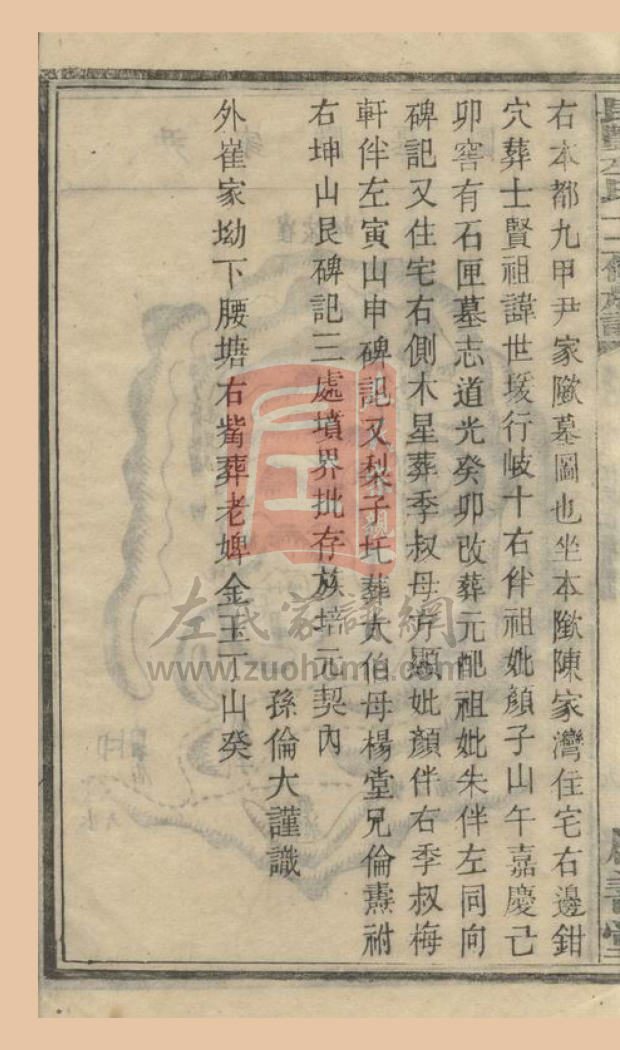 右本都九甲尹家墩墓圖也坐本墩陳家灣住宅右邊鉗
穴葬士賢祖諱世瑗行岐十右伴祖妣顏子山午嘉慶己
卯窖有石匣墓志道光癸卯改葬元配祖妣朱伴左同向
碑記又住宅右側木星葬季叔母方顯妣顏伴右季叔梅
軒伴左寅山申碑記又梨子圫葬太伯母楊堂兄倫燾祔
右坤山艮碑記三處墳界批存族培元契內
孫倫大謹識
外崔家坳下腰塘右觜葬老婢金玉丁山癸
左氏家譜網
www.zuohome.com